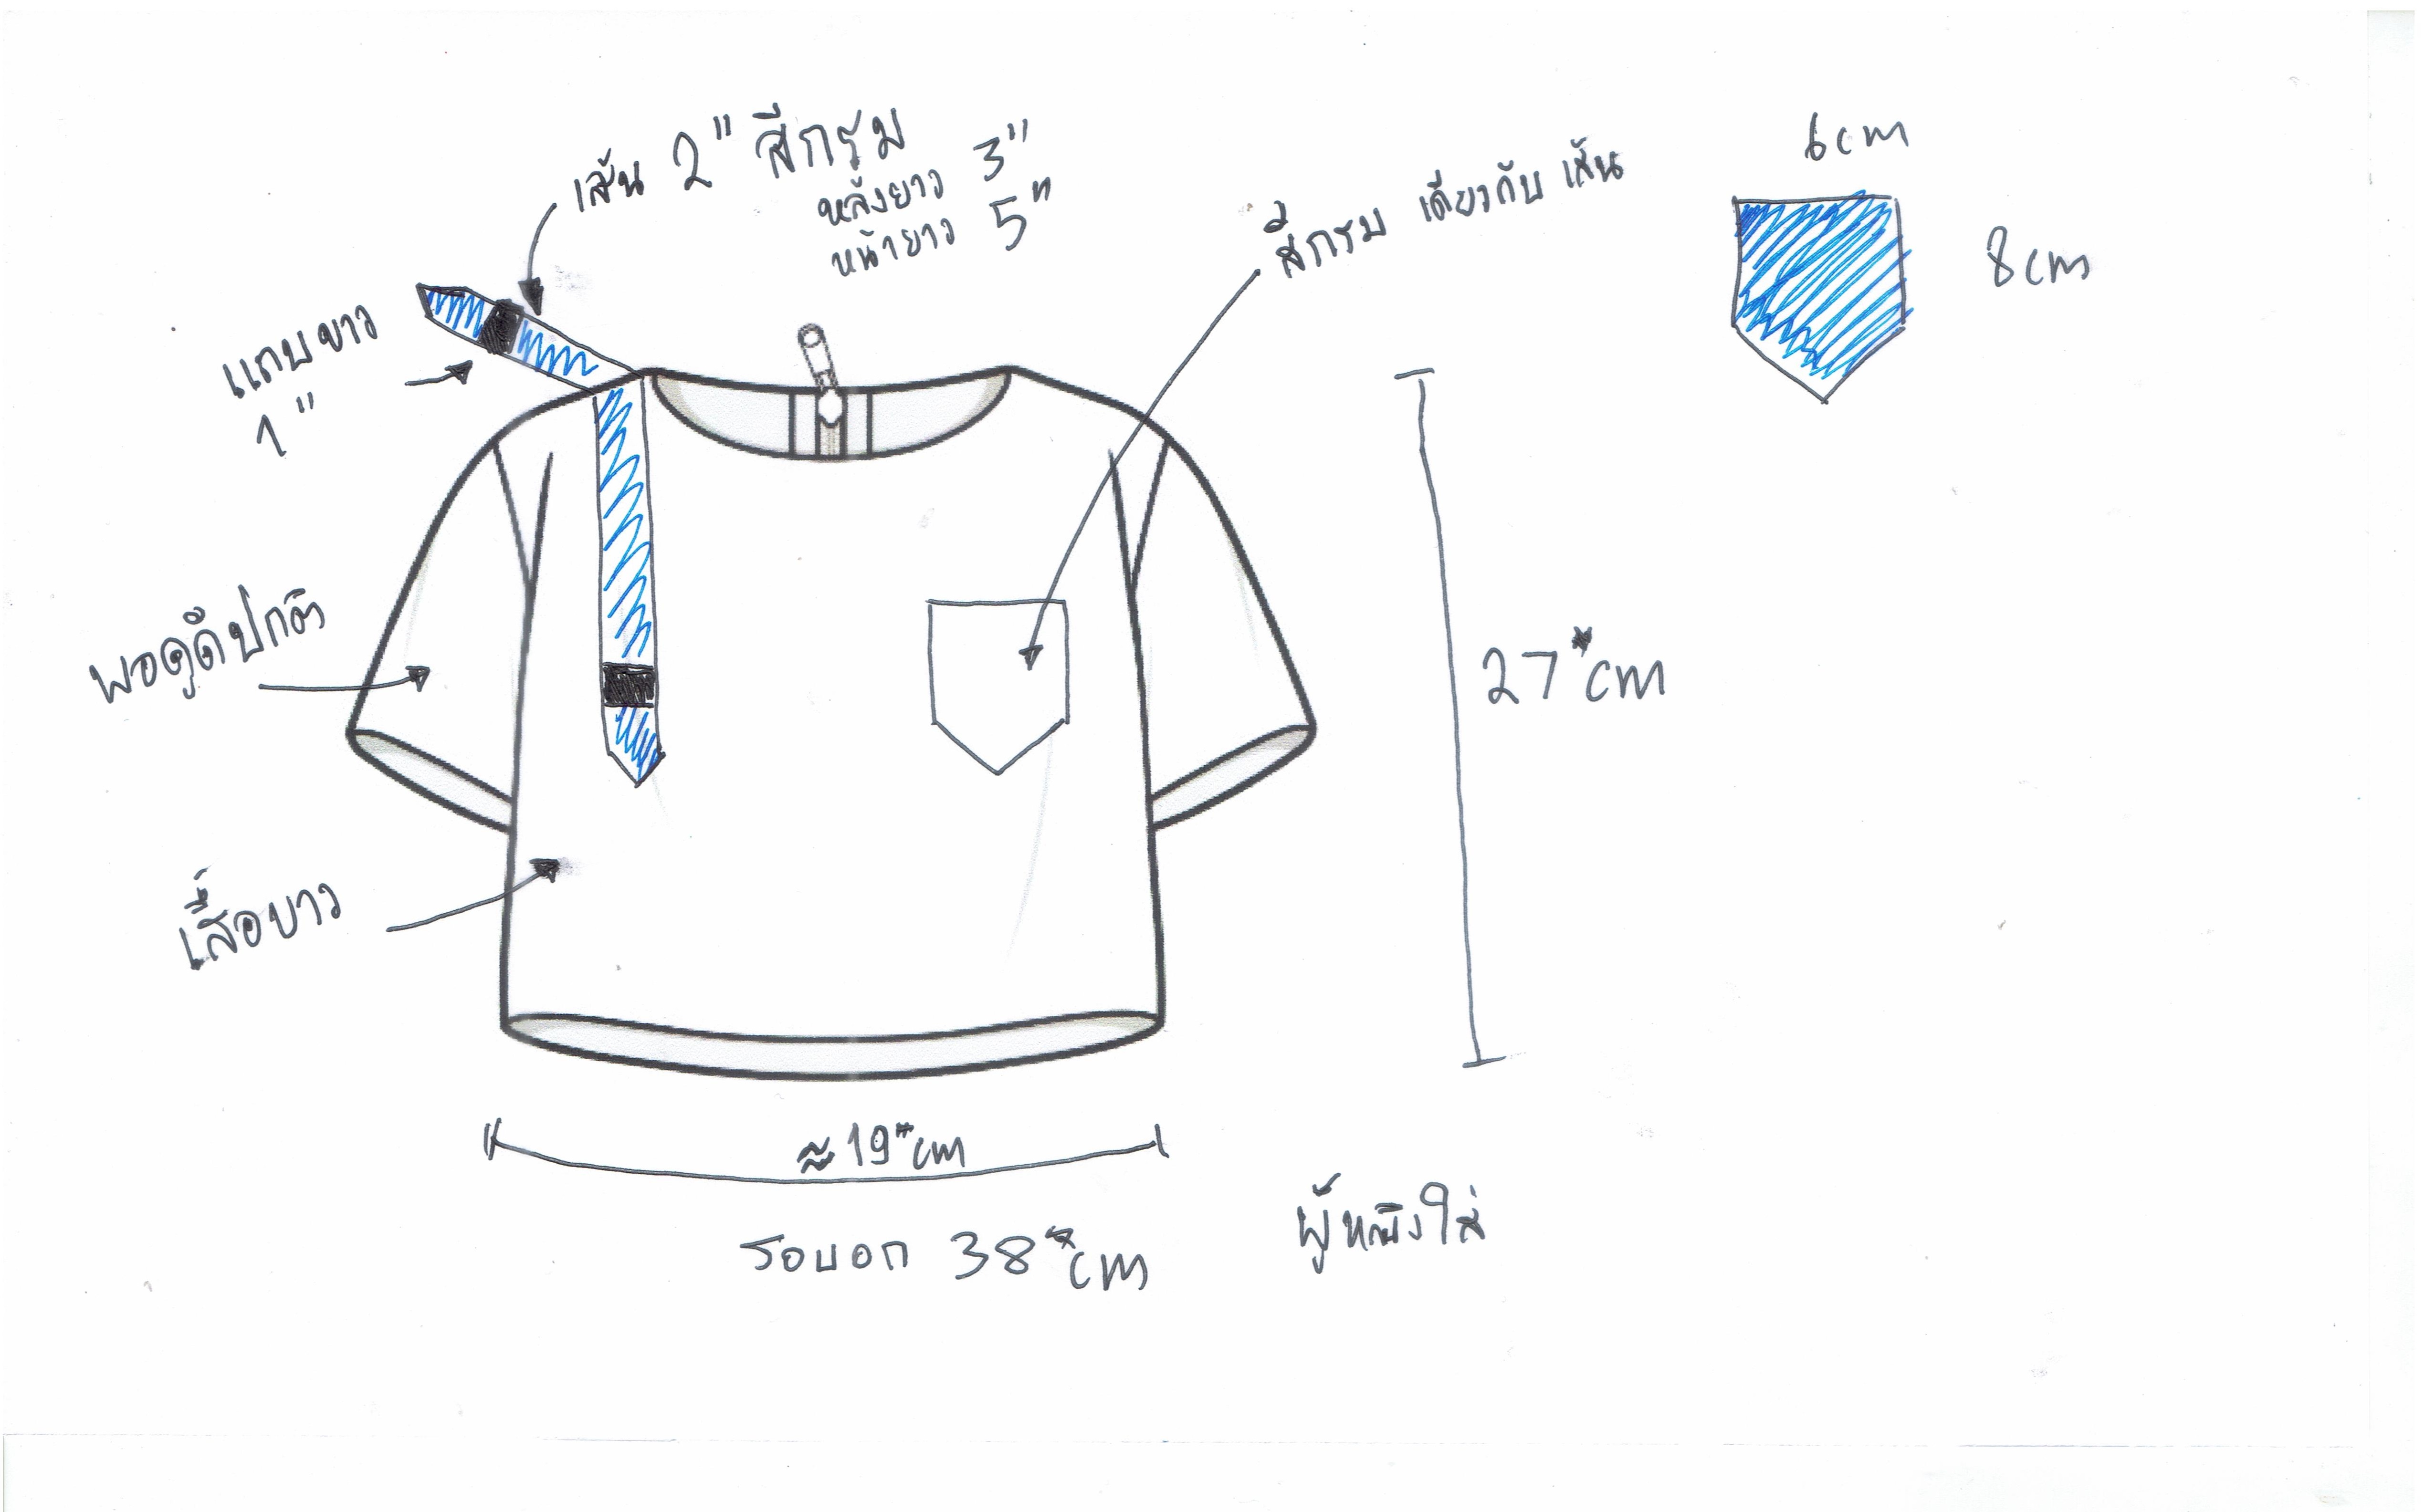 เส้น 2" สีกรม
หลังยาว 3"
หน้ายาว 5"
สีกรม เดียวกับ เส้น
6cm
8cm
แถบขาว
1"
พอดูดิปกติ
27"cm
เสื้อขาว
≈19"cm
รอบอก 38"cm
ผู้หญิงใส่